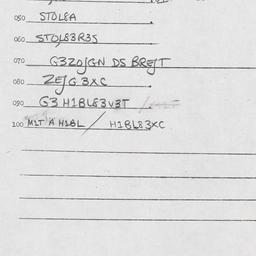 050 STOL8A
060 STO/L83R3S
070 G3ZO/GN DS BRE/T
080 ZE/G3XC
090 G3 H1BL83V3T
100 M1T A H1BL / H1BL83XC